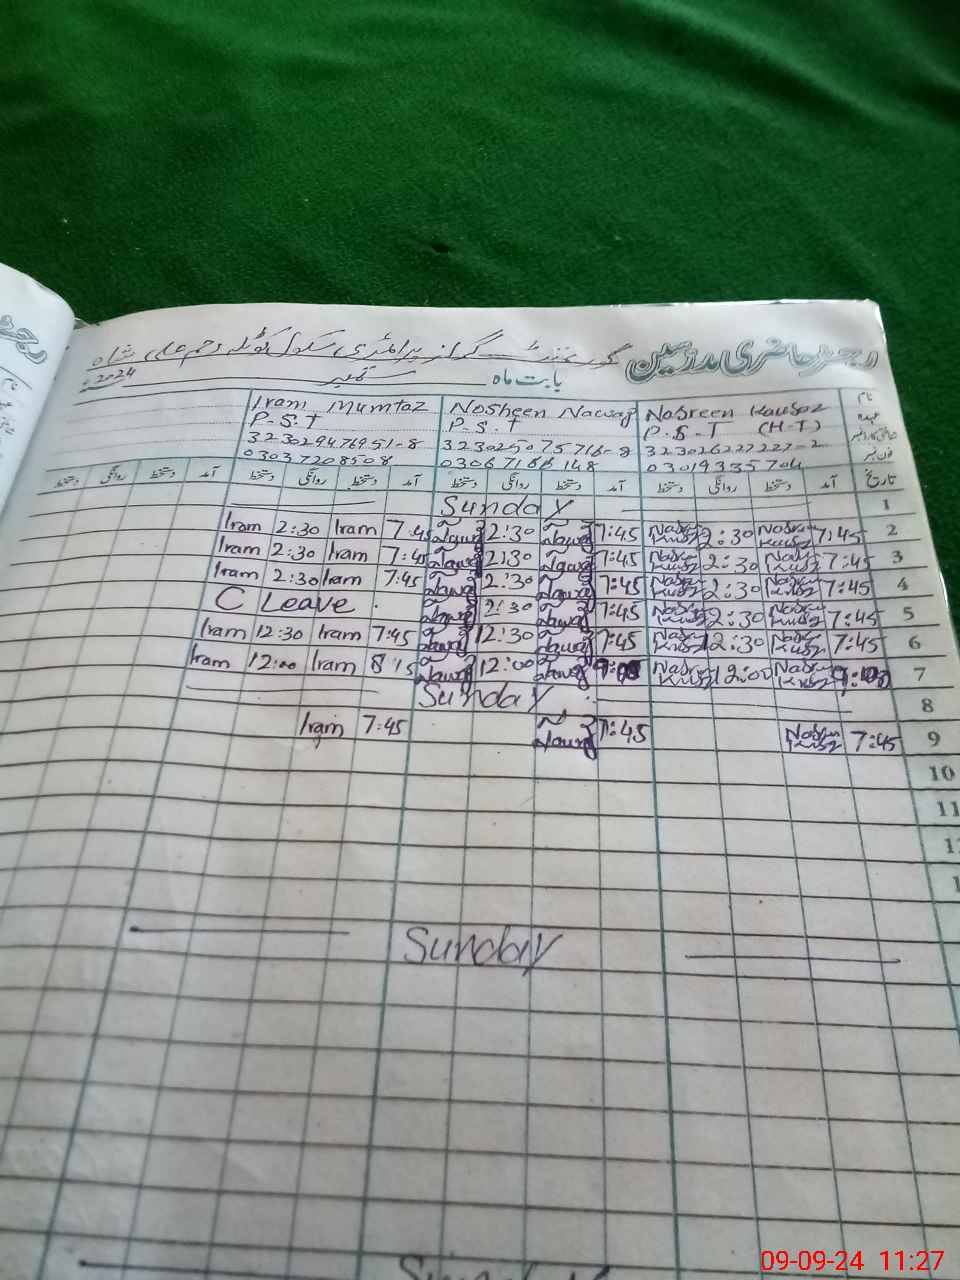 رجسٹر حاضری مدرسین گورنمنٹ گرلز پرائمری سکول کوٹلہ رحم علی شاہ
بابت ماہ ستمبر 2024
نام Nasreen Kausar Nosheen Nawaz Iram Mumtaz
عہدہ P.S.T (H-T) P.S.T P.S.T
شناختی کارڈ نمبر 323026227227-2 323025075716-8 323029476951-8
فون نمبر 03019335704 03037208508
تاریخ آمد دستخط روانگی دستخط آمد دستخط روانگی دستخط آمد دستخط روانگی دستخط آمد دستخط دستخط
1 Sunday
2 7:45 Nasreen Kausar 2:30 Nasreen Kausar 7:45 Nawaz 2:30 Nawaz 7:45 Iram 2:30 Iram
3 7:45 Nasreen Kausar 2:30 Nasreen Kausar 7:45 Nawaz 2:30 Nawaz 7:45 Iram 2:30 Iram
4 7:45 Nasreen Kausar 2:30 Nasreen Kausar 7:45 Nawaz 2:30 Nawaz 7:45 Iram 2:30 Iram
5 7:45 Nasreen Kausar 2:30 Nasreen Kausar 7:45 Nawaz 2:30 Nawaz C Leave
6 7:45 Nasreen Kausar 12:30 Nasreen Kausar 7:45 Nawaz 12:30 Nawaz 7:45 Iram 12:30 Iram
7 Nasreen Kausar 12:00 Nasreen Kausar Nawaz 12:00 Nawaz 8:15 Iram 12:00 Iram
8 Sunday
9 7:45 Nasreen Kausar 7:45 Nawaz 7:45 Iram
10
11
Sunday
09-09-24 11:27